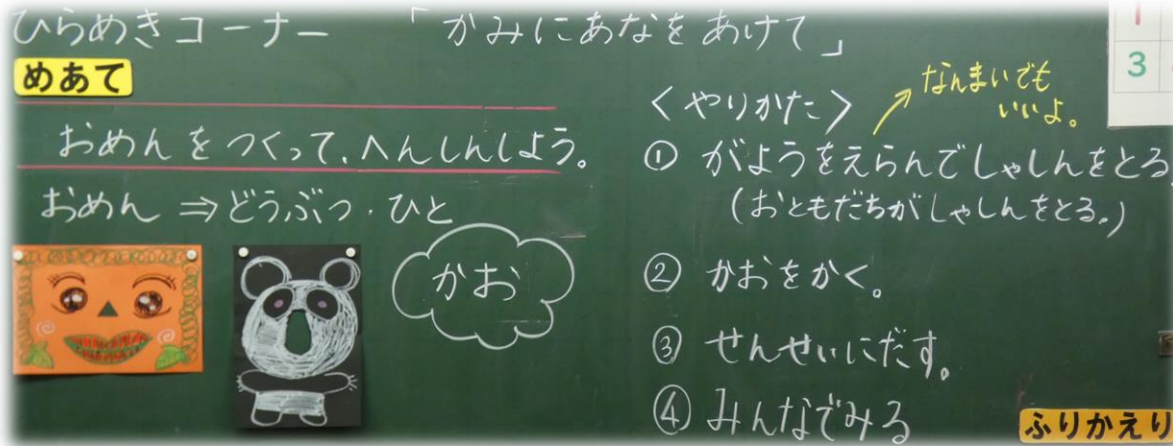 ひらめきコーナー 「かみにあなをあけて」
めあて
おめんをつくって、へんしんしよう。
おめん ⇒ どうぶつ・ひと
かお
<やりかた>
なんまいでも
いいよ。
① がようをえらんでしゃしんをとる
(おともだちがしゃしんをとる。)
② かおをかく。
③ せんせいにだす。
④ みんなでみる
ふりかえり
1
3